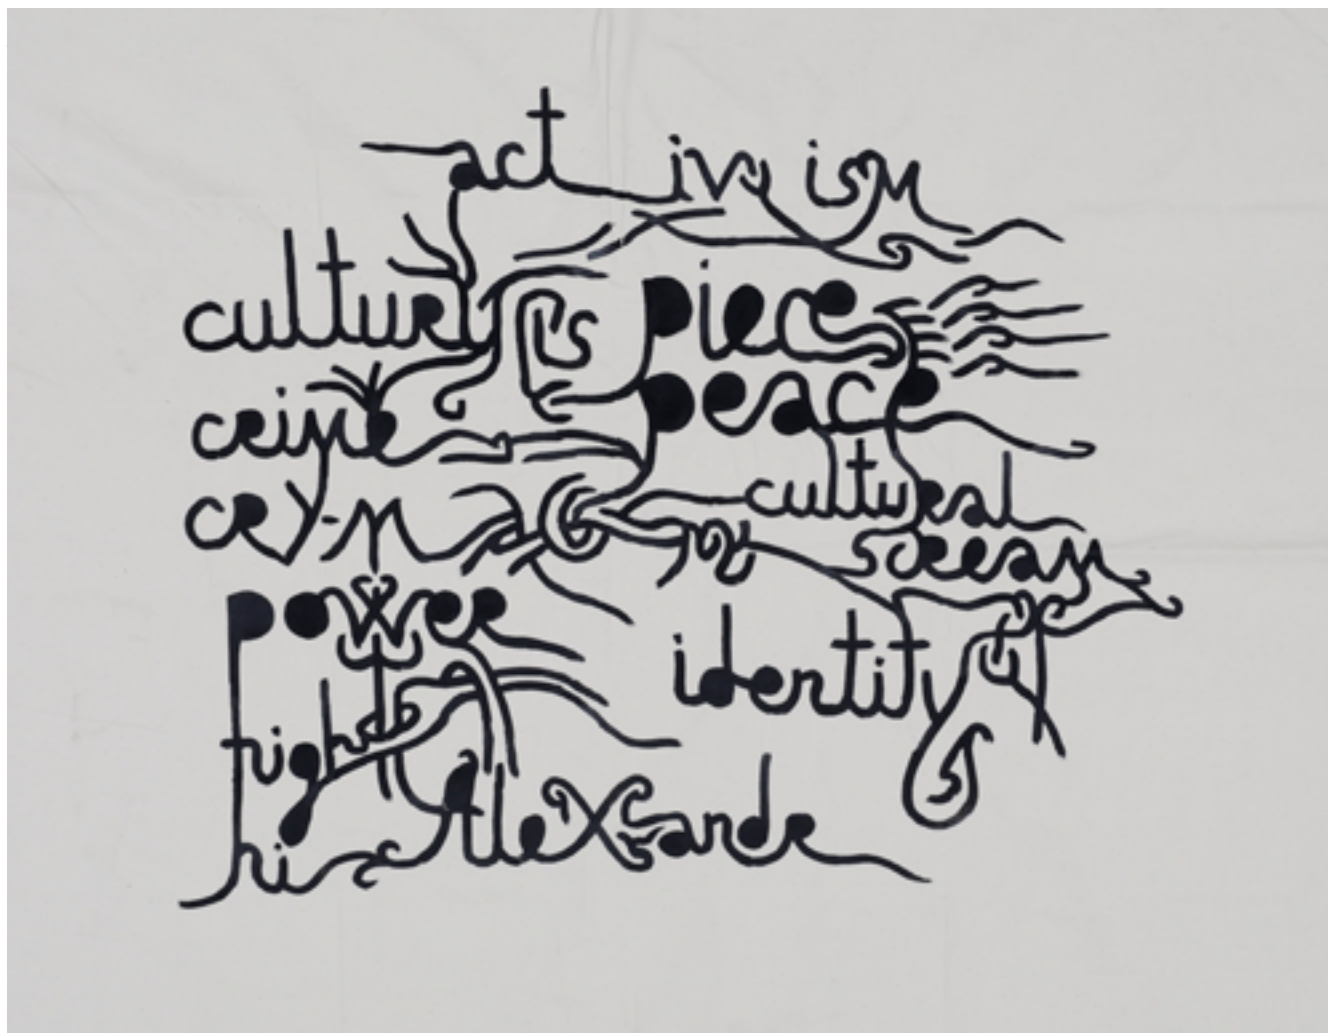 act iv ism
culture is piece
crime peace
cry-m cultural
scream
power
identity
right
hi Alexandr